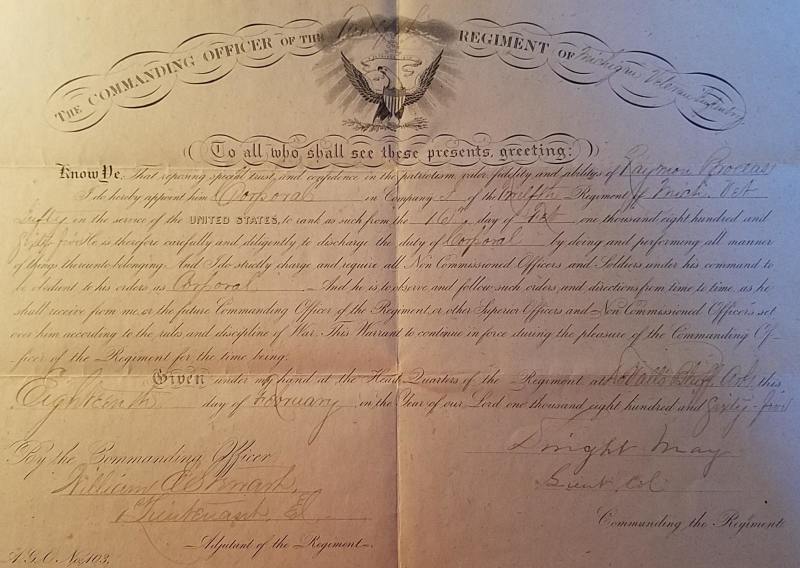 THE COMMANDING OFFICER OF THE Twelfth REGIMENT OF Michigan Volunteer Infantry
To all who shall see these presents, greeting:
Know Ye, That reposing special trust and confidence in the patriotism, valor, fidelity and abilities of Raymon
I do hereby appoint him Corporal in Company of the Twelfth Regiment of Mich. Vet
Inftry in the service of the UNITED STATES, to rank as such from the 16th day of Feb one thousand eight hundred and
Sixty five He is therefore carefully and diligently to discharge the duty of Corporal by doing and performing all manner
of things thereunto belonging. And I do strictly charge and require all Non Commissioned Officers and Soldiers under his command to
be obedient to his orders as Corporal And he is to observe and follow such orders and directions from time to time, as he
shall receive from me, or the future Commanding Officer of the Regiment, or other Superior Officers and Non Commissioned Officers set
over him according to the rules and discipline of War. This Warrant to continue in force during the pleasure of the Commanding Of-
ficer of the Regiment for the time being.
Given under my hand at the Head Quarters of the Regiment at Bluff Ark this
Eighteenth day of February in the Year of our Lord one thousand eight hundred and Sixty-five
By the Commanding Officer
Dwight May
William
Lieut Col
1st Lieutenant
Commanding the Regiment
Adjutant of the Regiment.
A.G.O. No. 103.